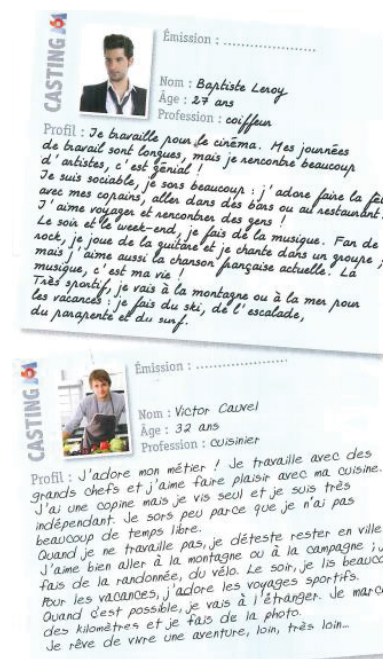 CASTING M6
Émission : ........................
Nom : Baptiste Leroy
Âge : 27 ans
Profession : coiffeur
Profil : Je travaille pour le cinéma. Mes journées
de travail sont longues, mais je rencontre beaucoup
d'artistes, c'est génial !
Je suis sociable, je sors beaucoup : j'adore faire la
avec mes copains, aller dans des bars ou au restaurant.
J'aime voyager et rencontrer des gens !
Le soir et le week-end, je fais de la musique. Fan de
rock, je joue de la guitare et je chante dans un groupe ;
mais j'aime aussi la chanson française actuelle. La
musique, c'est ma vie !
Très sportif, je vais à la montagne ou à la mer pour
les vacances : je fais du ski, de l'escalade,
du parapente et du surf.
CASTING M6
Émission : ........................
Nom : Victor Cauvel
Âge : 32 ans
Profession : cuisinier
Profil : J'adore mon métier ! Je travaille avec des
grands chefs et j'aime faire plaisir avec ma cuisine.
J'ai une copine mais je vis seul et je suis très
indépendant. Je sors peu parce que je n'ai pas
beaucoup de temps libre.
Quand je ne travaille pas, je déteste rester en ville
J'aime bien aller à la montagne ou à la campagne ;
fais de la randonnée, du vélo. Le soir, je lis
Pour les vacances, j'adore les voyages sportifs.
Quand c'est possible, je vais à l'étranger. Je
des kilomètres et je fais de la photo.
Je rêve de vivre une aventure, loin, très loin...